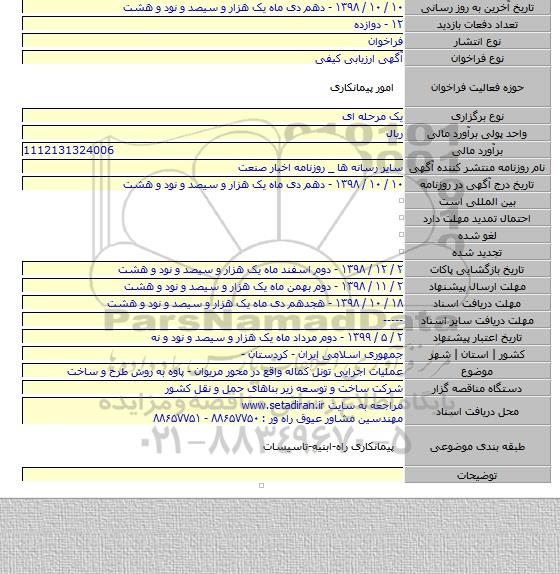 تاریخ آخرین به روز رسانی ۱۰ / ۱۰ / ۱۳۹۸ - دهم دی ماه یک هزار و سیصد و نود و هشت
تعداد دفعات بازدید ۱۲ - دوازده
نوع انتشار فراخوان
نوع فراخوان آگهی ارزیابی کیفی
حوزه فعالیت فراخوان امور پیمانکاری
نوع برگزاری یک مرحله ای
واحد پولی برآورد مالی ریال
برآورد مالی 1112131324006
نام روزنامه منتشر کننده آگهی سایر رسانه ها _ روزنامه اخبار صنعت
تاریخ درج آگهی در روزنامه ۱۰ / ۱۰ / ۱۳۹۸ - دهم دی ماه یک هزار و سیصد و نود و هشت
بین المللی است
احتمال تمدید مهلت دارد
لغو شده
تجدید شده
تاریخ بازگشایی پاکات ۲ / ۱۲ / ۱۳۹۸ - دوم اسفند ماه یک هزار و سیصد و نود و هشت
مهلت ارسال پیشنهاد ۲ / ۱۱ / ۱۳۹۸ - دوم بهمن ماه یک هزار و سیصد و نود و هشت
مهلت دریافت اسناد ۱۸ / ۱۰ / ۱۳۹۸ - هجدهم دی ماه یک هزار و سیصد و نود و هشت
مهلت دریافت سایر اسناد -----
تاریخ اعتبار پیشنهاد ۲ / ۵ / ۱۳۹۹ - دوم مرداد ماه یک هزار و سیصد و نود و نه
کشور | استان | شهر جمهوری اسلامی ایران - کردستان -
موضوع عملیات اجرایی تونل کماله واقع در محور مریوان - پاوه به روش طرح و ساخت
دستگاه مناقصه گزار شرکت ساخت و توسعه زیر بناهای حمل و نقل کشور
محل دریافت اسناد مراجعه به سایت www.setadiran.ir
مهندسین مشاور عیوق راه ور : ۸۸۶۵۷۷۵۰ - ۸۸۶۵۷۷۵۱
طبقه بندی موضوعی پیمانکاری راه-ابنیه-تاسیسات
توضیحات
ParsNamadData
پایگاه اطلاع رسانی مناقصه و مزایده
۰۲۱-۸۸۳۴۹۶۷۰-۵